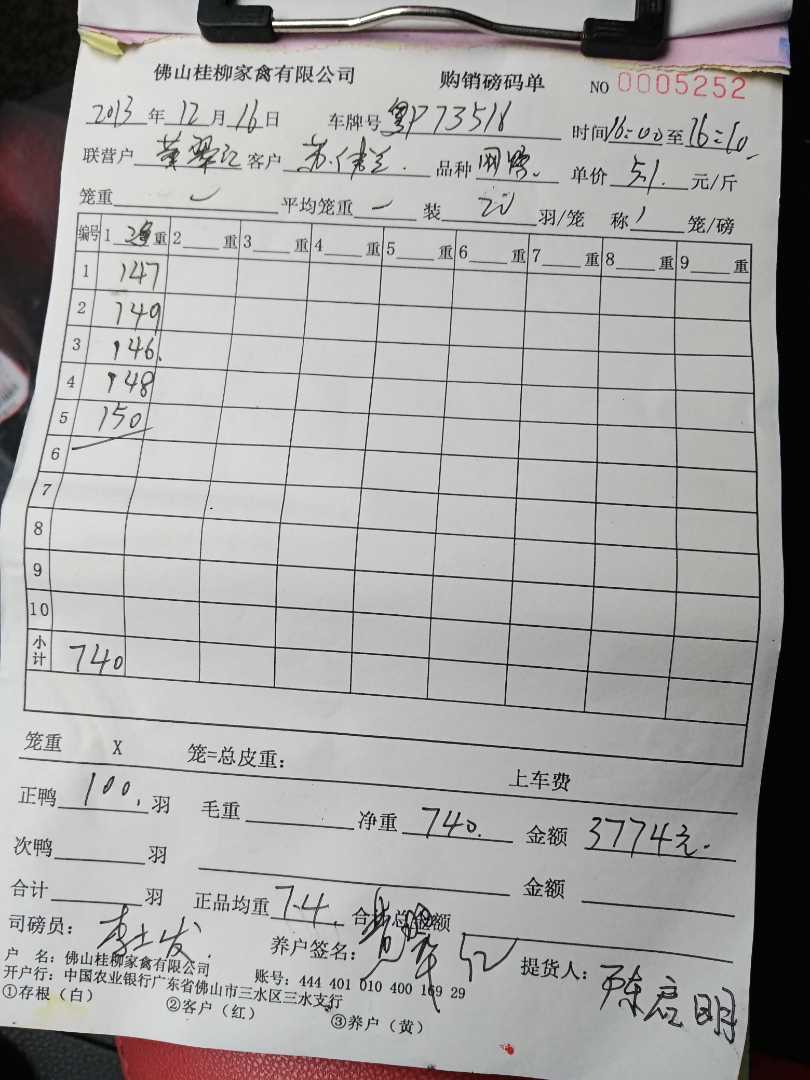 佛山桂柳家禽有限公司 购销磅码单 NO 0005252
2013年12月16日 车牌号 粤P73518 时间16:00至16:10
联营户 黄翠红 客户 品种 单价 5.1 元/斤
笼重 平均笼重 一 装 20 羽/笼 称 1 笼/磅
编号 1 重 2 重 3 重 4 重 5 重 6 重 7 重 8 重 9 重
1 147
2 149
3 146.
4 148
5 150
6
7
8
9
10
小计 740
笼重 X 笼=总皮重: 上车费
正鸭 100. 羽 毛重 净重 740. 金额 3774元.
次鸭 羽 金额
合计 羽 正品均重 7.4. 合计总金额
司磅员: 李士发. 养户签名: 黄翠红 提货人: 陈启明
户 名: 佛山桂柳家禽有限公司 账号: 444 401 010 400 169 29
开户行: 中国农业银行广东省佛山市三水区三水支行
①存根(白) ②客户(红) ③养户(黄)